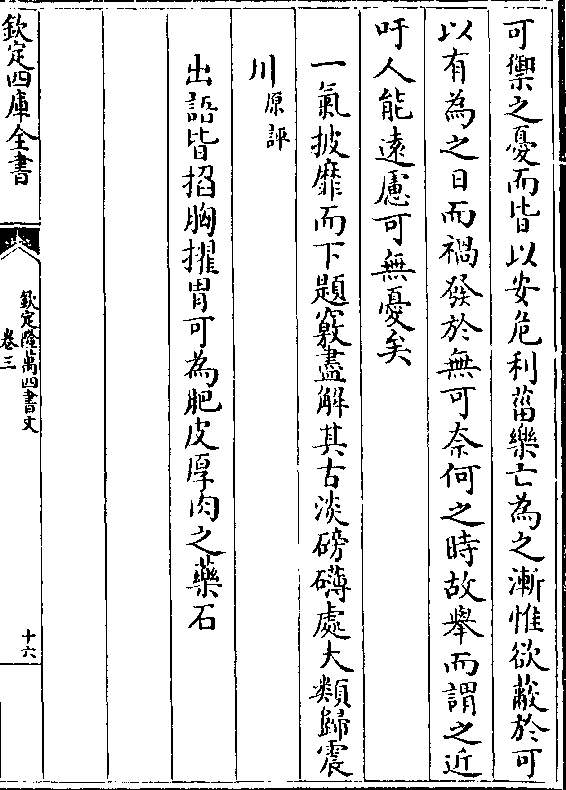 可禦之憂而皆以安危利菑樂亡為之漸惟欲蔽於可
以有為之日而禍發於無可奈何之時故舉而謂之近
吁人能遠慮可無憂矣
一氣披靡而下題竅盡解其古淡磅礴處大類歸震
川原評
出語皆搯胸擢胃可為肥皮厚肉之藥石
欽定四庫全書
欽定隆萬四書文
卷三
十六